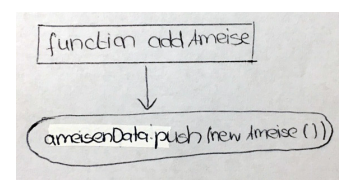 function addAmeise
ameisenData.push(new Ameise())